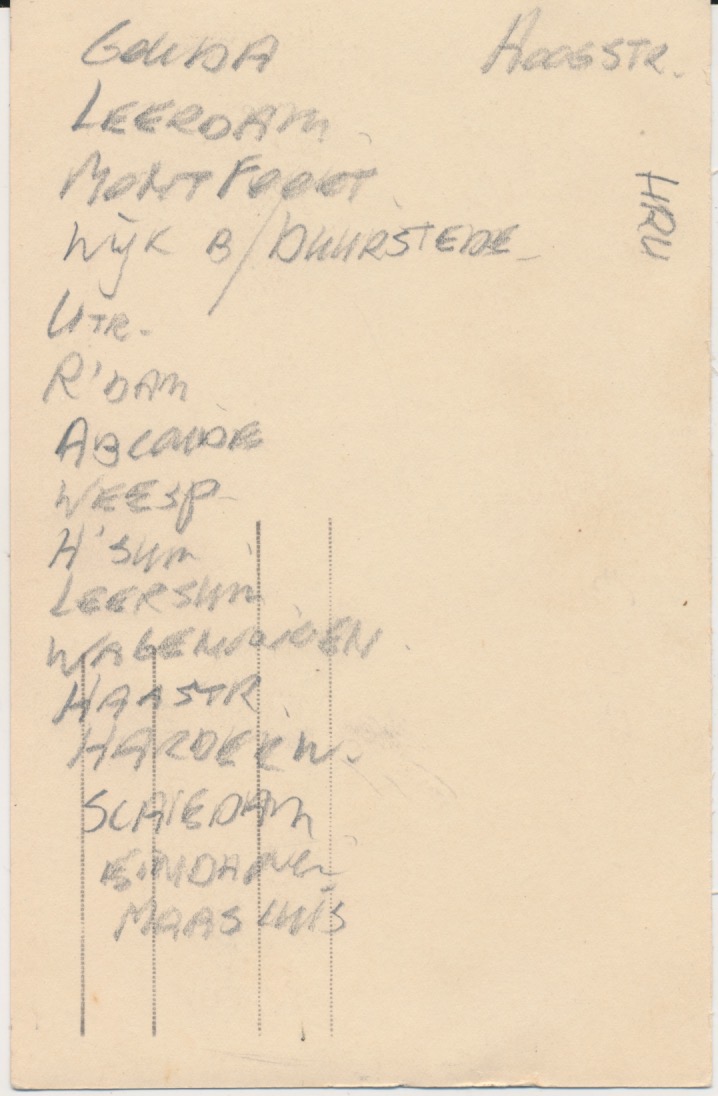 GOUDA HOOGSTR.
LEERDAM
MONTFOORT
WIJK B/DUURSTEDE
HRU
UTR.
R'DAM
ABCOUDE
WEESP
H'SUM
LEERSUM
WAGENINGEN
HAASTR
HARDERW.
SCHIEDAM
MAASLUIS